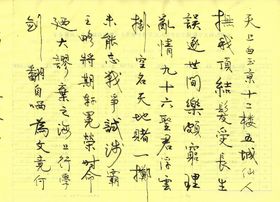 天上白玉京十二樓五城仙人
撫我頂結髮受長生
誤逐世間樂頗窮理
亂情九十六聖君浮雲
掛空名天地賭一擲
未能忘戰爭試涉霸
王略將期軒冕榮時命
迺大謬棄之海上行學
劍翻自哂為文竟何